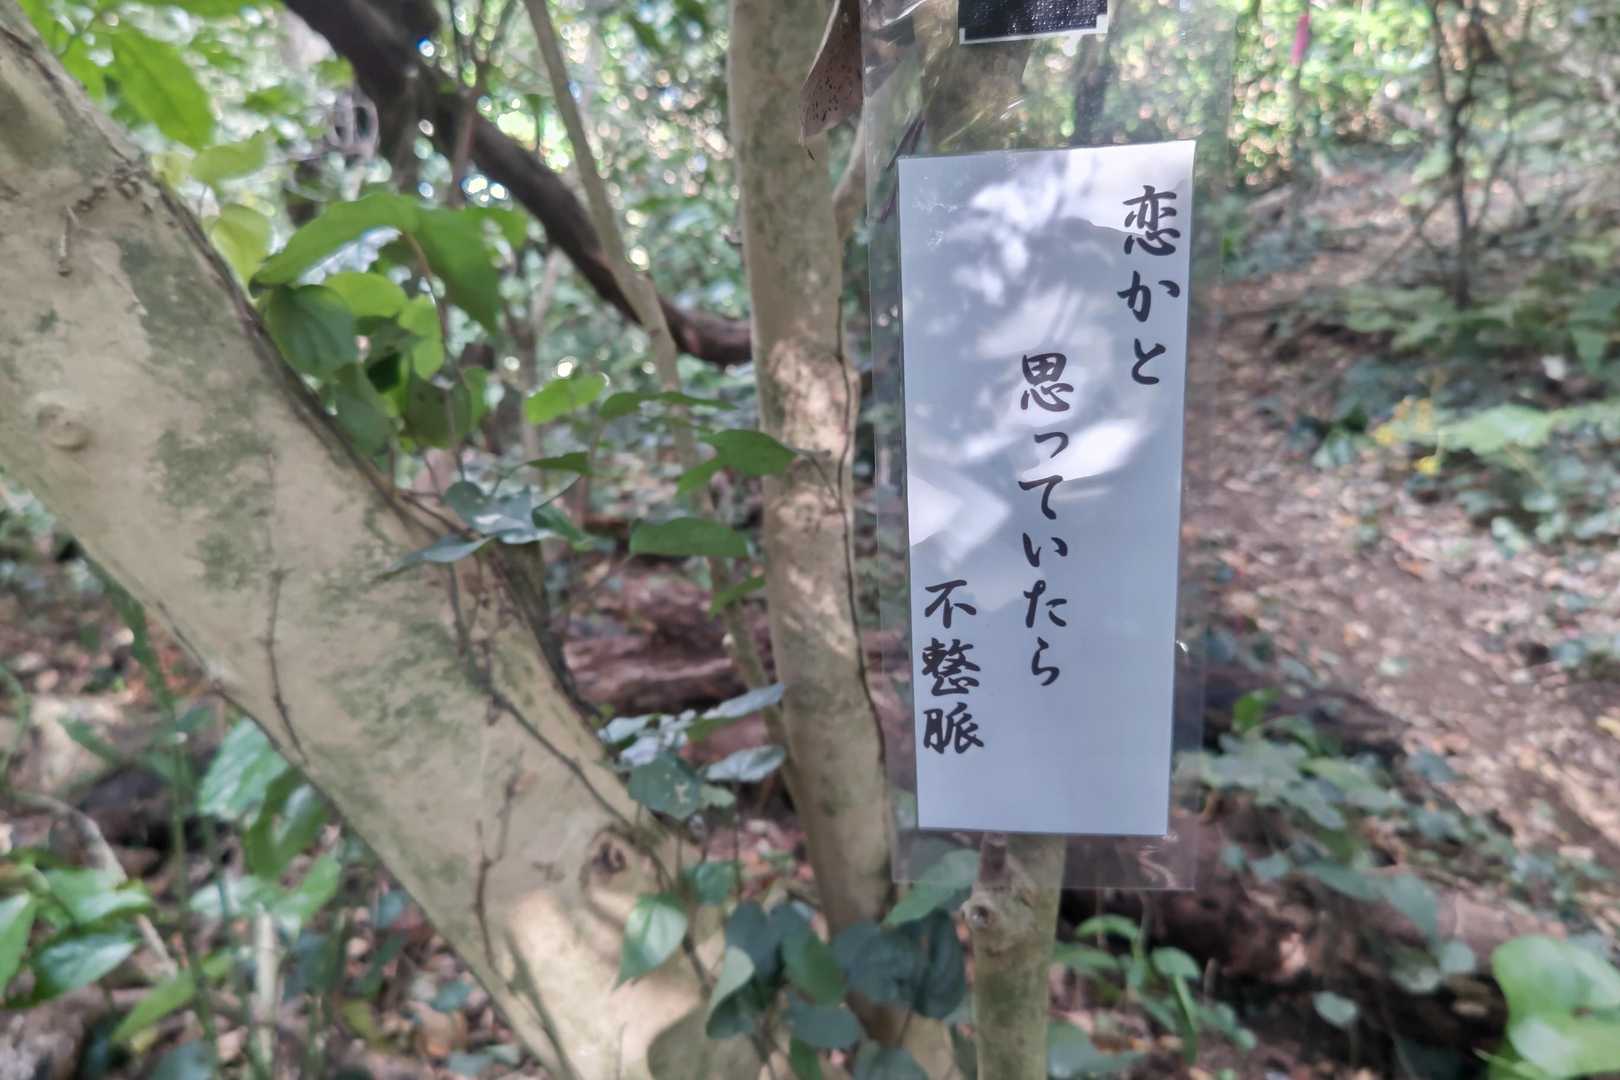 恋かと
思っていたら
不整脈